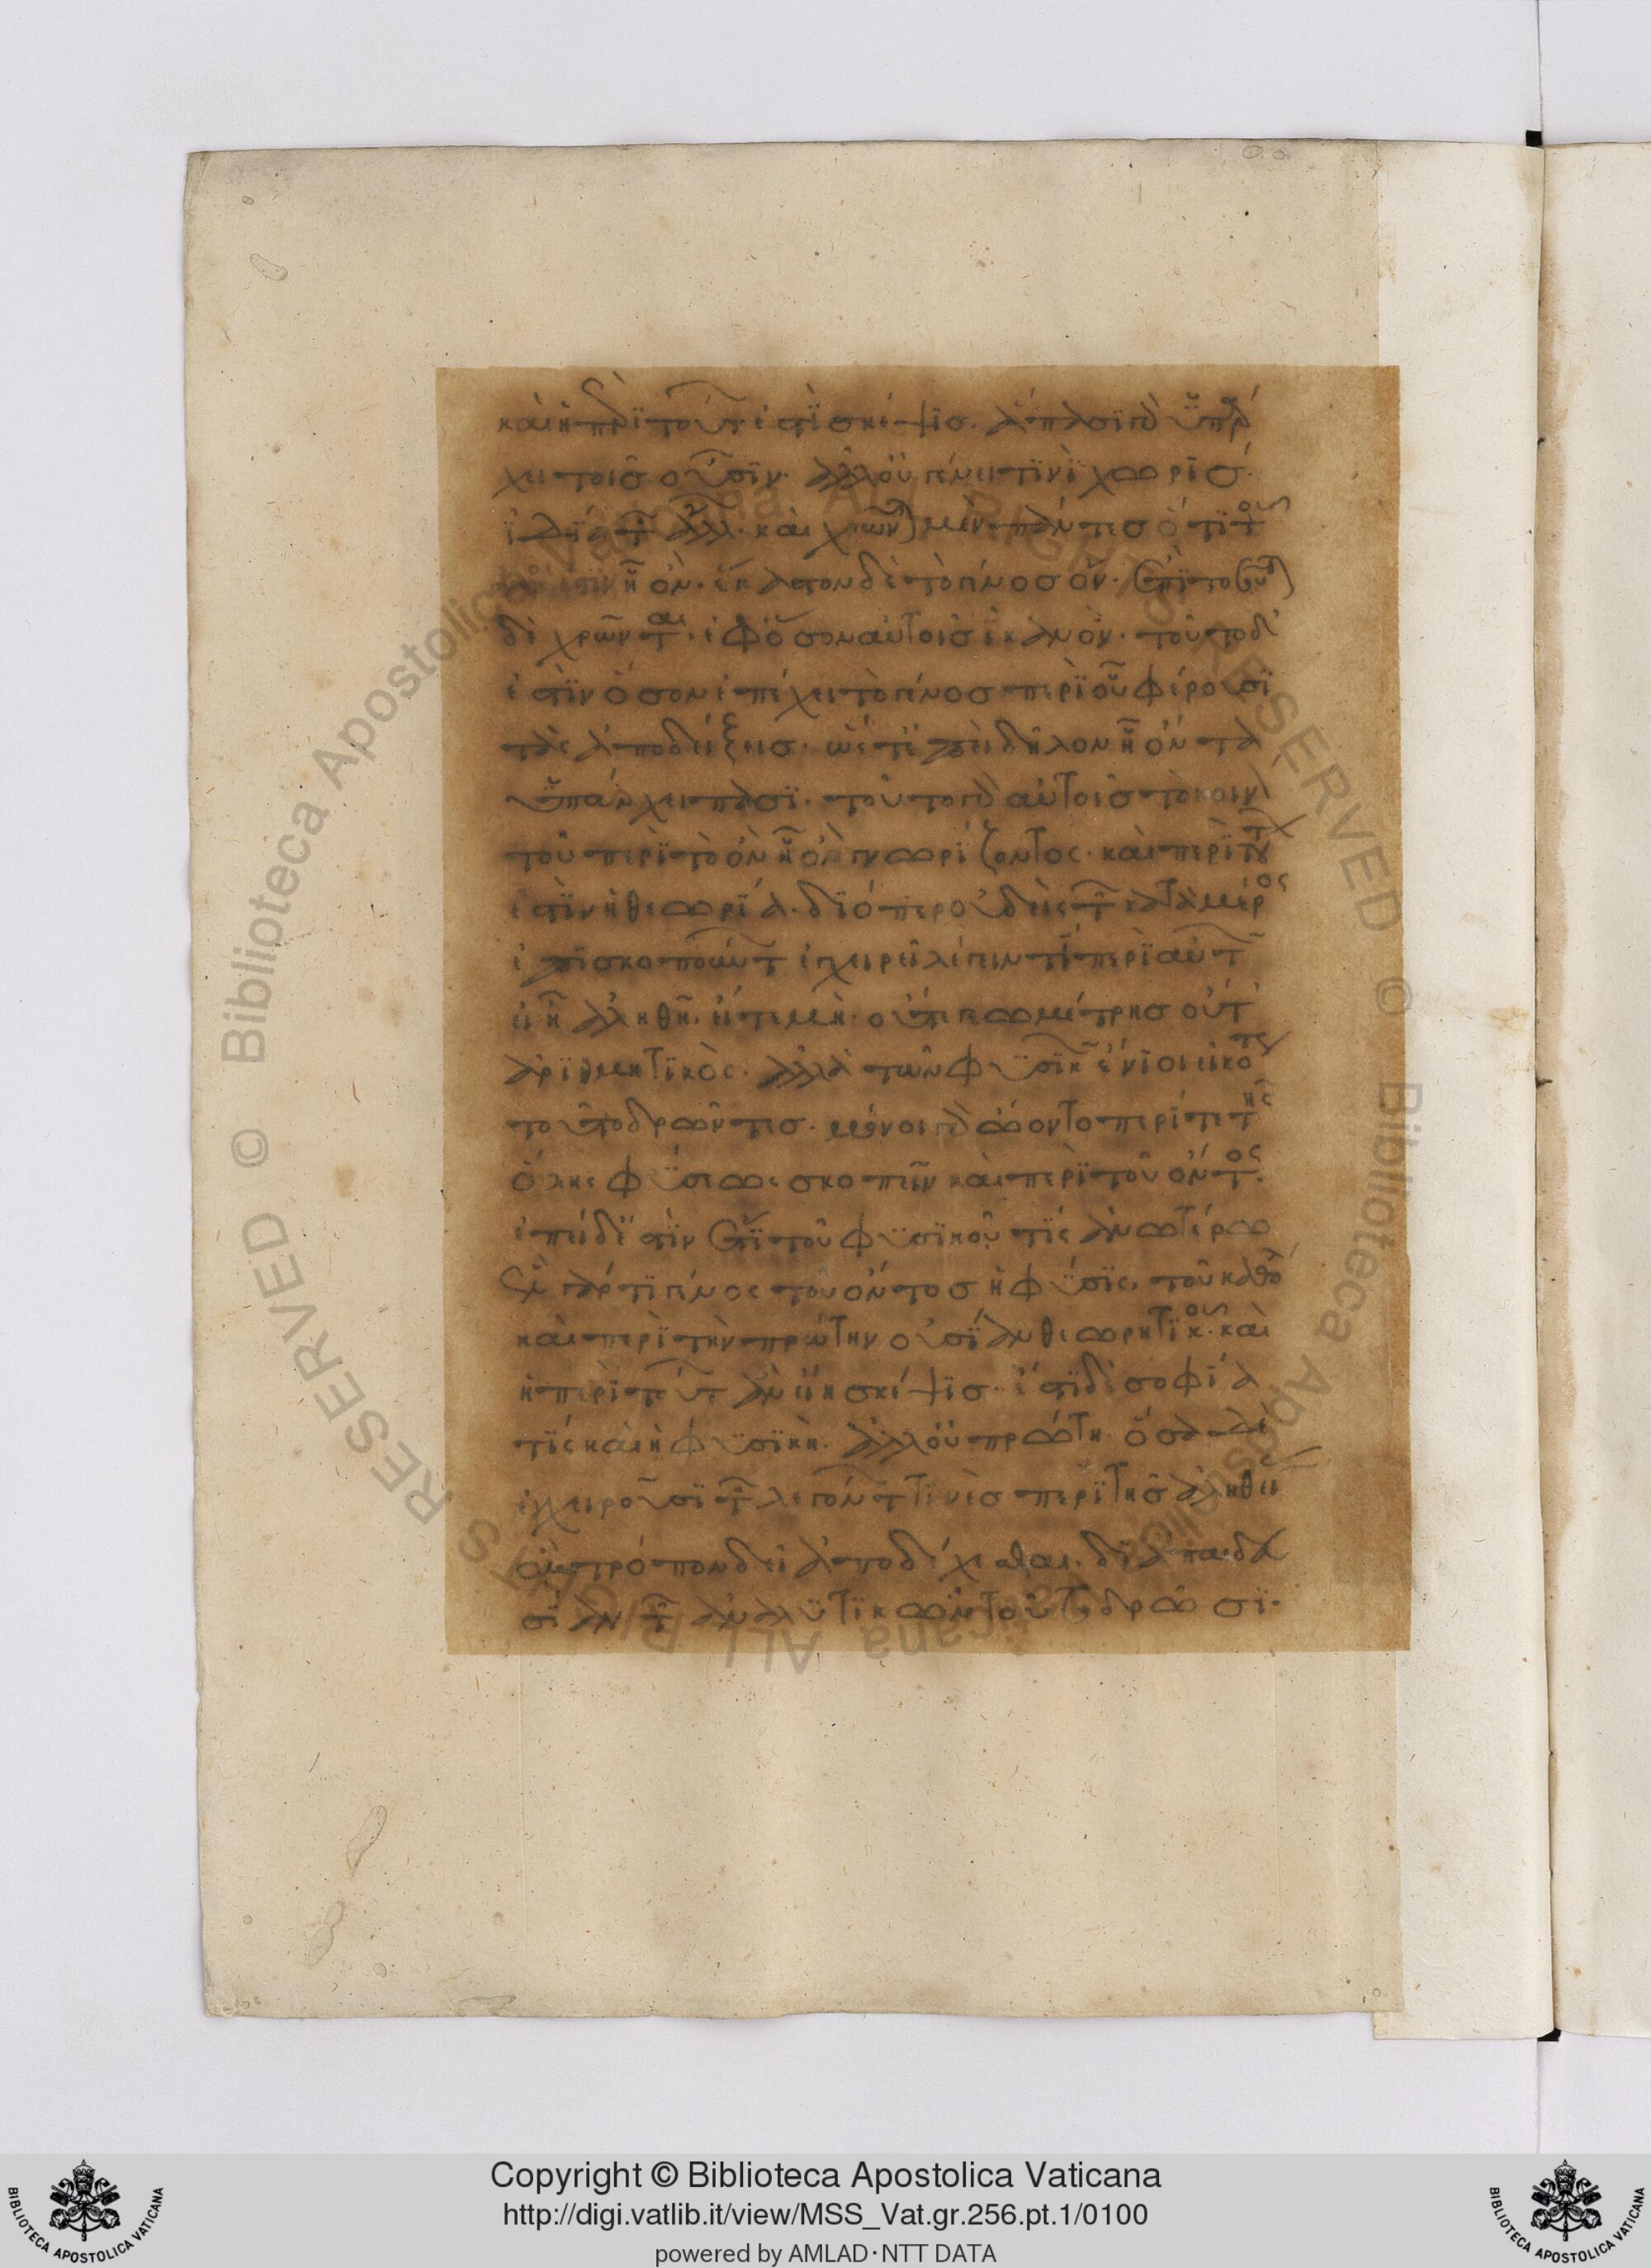 καὶ ἡ περὶ τούτ ἐστὶ σκέψις. ἅπασι γὰρ ὑπάρ
χει τοῖς οὖσιν. ἀλλ' οὐ γένει τινὶ χωρὶς
ἰδία τ ἄλλ. καὶ χρῶνται μὲν πάντες ὅτι τοῦ
ἐστὶν ᾗ ὄν. ἕκαστον δὲ τὸ γένος ὄν. ἐπὶ τοσοῦτ
δὲ χρῶνται. ἐφ' ὅσον αὐτοῖς ἱκανόν. τοῦτο δ'
ἐστὶν ὅσον ἐπέχει τὸ γένος περὶ οὗ φέρουσι
τὰς ἀποδείξεις. ὥστ' ἐπεὶ δῆλον ᾗ ὄντα
ὑπάρχει πᾶσι. τοῦτο γὰρ αὐτοῖς τὸ κοιν
τοῦ περὶ τὸ ὂν ᾗ ὂν γνωρίζοντος. καὶ περὶ τούτ
ἐστὶν ἡ θεωρία. διόπερ οὐδεὶς τ κατὰ μέρος
ἐπισκοπούντ ἐγχειρεῖ λέγειν τὶ περὶ αὐτ
εἰ ἢ ἀληθῆ. εἴτε μή. οὔτε γεωμέτρης οὔτ'
ἀριθμητικός. ἀλλὰ τῶν φυσικ ἔνιοι εἰκότως
τοῦτο δρῶντες. μόνοι γὰρ ὤοντο περί τε τῆς
ὅλης φύσεως σκοπεῖν καὶ περὶ τοῦ ὄντος.
ἐπεὶ δ' ἐστὶν ἔτι τοῦ φυσικοῦ τὶς ἀνωτέρω
ἓν γάρ τι γένος τοῦ ὄντος ἡ φύσις. τοῦ καθό
καὶ περὶ τὴν πρώτην οὐσίαν θεωρητικοῦ. καὶ
ἡ περὶ τούτ ἂν εἴη σκέψις. ἐστὶ δὲ σοφία
τὶς καὶ ἡ φυσική. ἀλλ' οὐ πρώτη. ὅσα δὲ
ἐγχειροῦσι τ λεγόντ τινὲς περὶ τῆς ἀληθεί
ὃν τρόπον δεῖ ἀποδέχεσθαι. δι' ἀπαιδευ
σίαν τ ἀναλυτικῶν τοῦτο δρῶσι.
Copyright © Biblioteca Apostolica Vaticana
http://digi.vatlib.it/view/MSS_Vat.gr.256.pt.1/0100
powered by AMLAD·NTT DATA